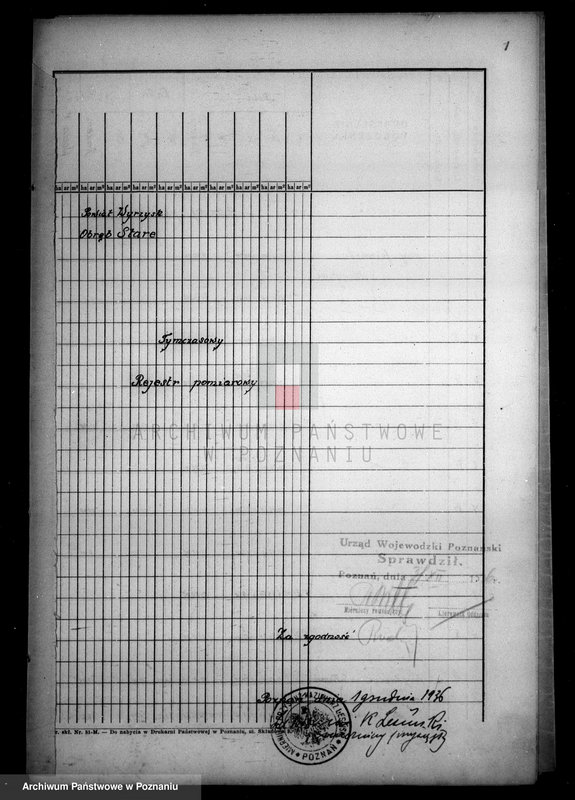 1
ha ar m² ha ar m² ha ar m² ha ar m² ha ar m² ha ar m² ha ar m² ha ar m² ha ar m² ha ar m²
Powiat Wyrzysk
Obręb Stare
Tymczasowy
Rejestr pomiarowy
ARCHIWUM PAŃSTWOWE
W POZNANIU
Urząd Wojewódzki Poznański
Sprawdził.
Poznań, dnia
Mierniczy
Kierownik Oddziału
Za zgodność
Poznań, dnia 1 grudnia 1936
K Lesiński
Mierniczy przysięgły
POZNAŃ
r. skł. Nr. 31-M. — Do nabycia w Drukarni Państwowej w Poznaniu, ul.
Archiwum Państwowe w Poznaniu